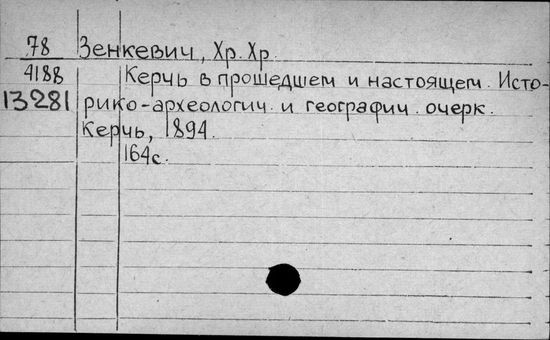 78 Зенкевич, Хр. Хр.
4188 Керчь в прошедшем и настоящем. Исто-
13281 рико-археологич. и географич. очерк.
Керчь, 1894.
164с.